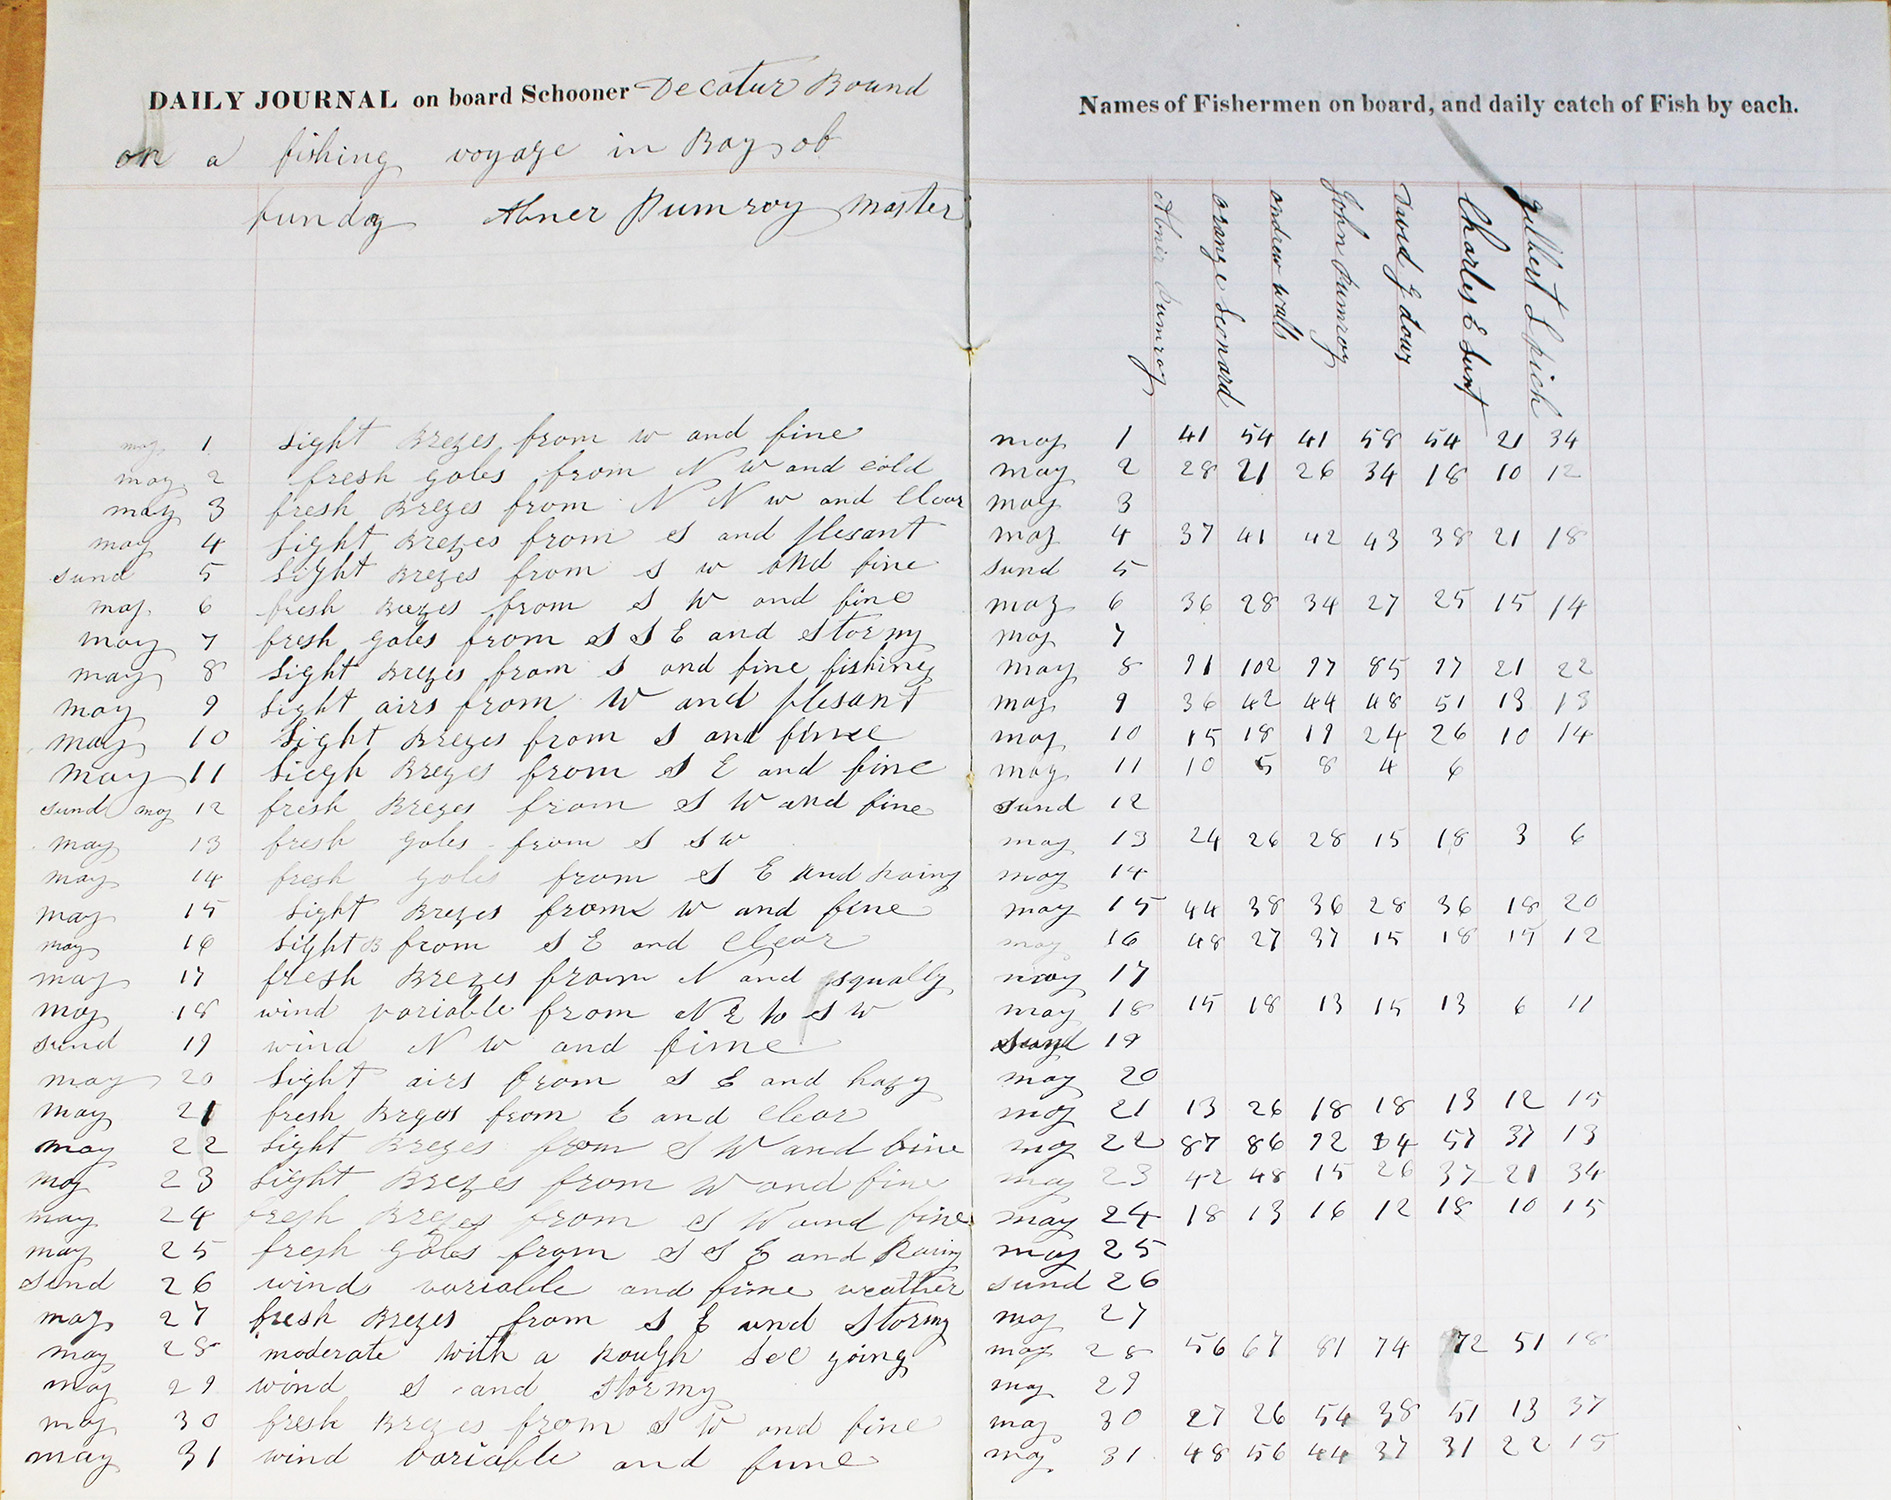 DAILY JOURNAL on board Schooner Decatur Bound
on a fishing voyage in Bay of
funday Abner Pumroy Master
may 1 Light Brezes from W and fine
may 2 fresh gales from N W and cold
may 3 fresh Brezes from N N W and Clear
may 4 Light Brezes from S and plesant
sund 5 Light Brezes from S W and fine
may 6 fresh Brezes from S W and fine
may 7 fresh gales from S S E and Stormy
may 8 Light Brezes from S and fine fishing
may 9 Light airs from W and plesant
may 10 Light Brezes from S and fine
may 11 Liegh Brezes from S E and fine
sund may 12 fresh Brezes from S W and fine
may 13 fresh gales from S SW
may 14 fresh gales from S E and Rainy
may 15 Light Brezes from W and fine
may 16 Light B from S E and Clear
may 17 fresh Brezes from N and squally
may 18 wind variable from N E to S W
sund 19 wind N W and fine
may 20 Light airs from S E and hazy
may 21 fresh from E and Clear
may 22 Light Brezes from S W and fine
may 23 Light Brezes from W and fine
may 24 fresh Brezes from S W and fine
may 25 fresh gales from S S E and Rainy
sund 26 winds variable and fine weather
may 27 fresh Brezes from S E and Stormy
may 28 moderate with a Rough See going
may 29 wind S and Stormy
may 30 fresh Brezes from S W and fine
may 31 wind variable and fine
Names of Fishermen on board, and daily catch of Fish by each.
Abner Pumroy
Orange Leonard
andrew walls
John Pumroy
David J
Charles E
Gilbert Spich
may 1 41 54 41 58 54 21 34
may 2 28 21 26 34 18 10 12
may 3
may 4 37 41 42 43 38 21 18
sund 5
may 6 36 28 34 27 25 15 14
may 7
may 8 91 102 97 85 97 21 22
may 9 36 42 44 48 51 13 13
may 10 15 18 19 24 26 10 14
may 11 10 5 8 4 6
sund 12
may 13 24 26 28 15 18 3 6
may 14
may 15 44 38 36 28 36 18 20
may 16 48 27 37 15 18 15 12
may 17
may 18 15 18 13 15 13 6 11
sund 19
may 20
may 21 13 26 18 18 13 12 15
may 22 87 86 92 84 57 37 13
may 23 42 48 15 26 37 21 34
may 24 18 13 16 12 18 10 15
may 25
sund 26
may 27
may 28 56 67 81 74 72 51 18
may 29
may 30 27 26 54 38 51 13 37
may 31 48 56 44 37 31 22 15